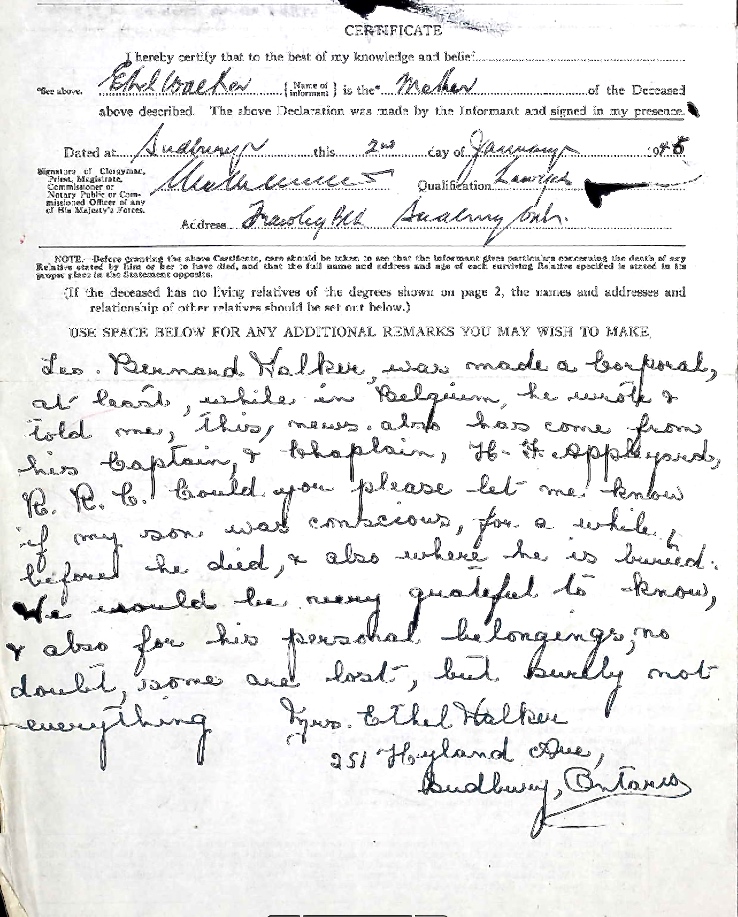 CERTIFICATE
I hereby certify that to the best of my knowledge and belief
*See above. Ethel Walker {Name of informant} is the* Mother of the Deceased
above described. The above Declaration was made by the Informant and signed in my presence.
Dated at Sudbury this 2nd day of January 1945
Signature of Clergyman, Priest, Magistrate, Commissioner or Notary Public or Commissioned Officer of any of His Majesty's Forces.
Qualification Lawyer
Address Frawley Blk Sudbury Ont.
NOTE.-Before granting the above Certificate, care should be taken to see that the informant gives particulars concerning the death of any
Relative stated by him or her to have died, and that the full name and address and age of each surviving Relative specified is stated in its
proper place in the Statement opposite.
(If the deceased has no living relatives of the degrees shown on page 2, the names and addresses and
relationship of other relatives should be set out below.)
USE SPACE BELOW FOR ANY ADDITIONAL REMARKS YOU MAY WISH TO MAKE
Leo. Bernard Walker, was made a Corporal,
at least, while in Belgium, he wrote &
told me, this, news also has come from
his Captain, & Chaplain, H. F. Appleyard,
R. R. C. Could you please let me know
if my son was conscious, for a while,
before he died, & also where he is buried.
We would be very grateful to know,
& also for his personal belongings, no
doubt, some are lost, but surely not
everything Mrs. Ethel Walker
251 Hyland Ave,
Sudbury, Ontario